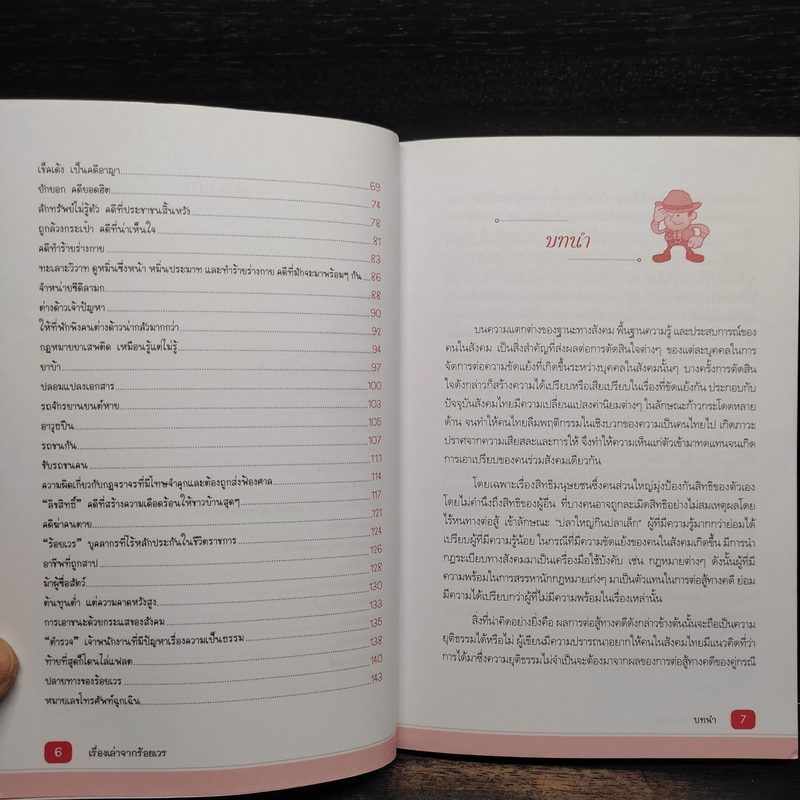 เช็คเด้ง เป็นคดีอาญา 69
ชักยอก คดียอดฮิต 74
ลักทรัพย์ไม่รู้ตัว คดีที่ประชาชนสิ้นหวัง 78
ถูกล้วงกระเป๋า คดีที่น่าเห็นใจ 81
คดีทำร้ายร่างกาย 83
ทะเลาะวิวาท ดูหมิ่นซึ่งหน้า หมิ่นประมาท และทำร้ายร่างกาย คดีที่มักจะมาพร้อมๆ กัน 86
จำหน่ายซีดีลามก 88
ต่างด้าวเจ้าปัญหา 90
ให้ที่พักพิงคนต่างด้าวน่ากลัวมากกว่า 92
กฎหมายยาเสพติด เหมือนรู้แต่ไม่รู้ 94
ยาบ้า 97
ปลอมแปลงเอกสาร 100
รถจักรยานยนต์หาย 103
อาวุธปืน 105
รถชนกัน 107
ขับรถชนคน 111
ความผิดเกี่ยวกับกฎจราจรที่มีโทษจำคุกและต้องถูกส่งฟ้องศาล 114
"ลิขสิทธิ์" คดีที่สร้างความเดือดร้อนให้ชาวบ้านสุดๆ 117
คดีฆ่าคนตาย 121
"ร้อยเวร" บุคลากรที่ไร้หลักประกันในชีวิตราชการ 124
อาชีพที่ถูกสาป 126
ม้าผู้ซื่อสัตว์ 128
ต้นทุนต่ำ แต่ความคาดหวังสูง 130
การเอาชนะด้วยกระแสของสังคม 133
"ตำรวจ" เจ้าพนักงานที่มีปัญหาเรื่องความเป็นธรรม 135
ท้ายที่สุดก็โดนไล่แฟลต 138
ปลายทางของร้อยเวร 140
หมายเลขโทรศัพท์ฉุกเฉิน 143
6 เรื่องเล่าจากร้อยเวร
บทนำ
บนความแตกต่างของฐานะทางสังคม พื้นฐานความรู้ และประสบการณ์ของ
คนในสังคม เป็นสิ่งสำคัญที่ส่งผลต่อการตัดสินใจต่างๆ ของแต่ละบุคคลในการ
จัดการต่อความขัดแย้งที่เกิดขึ้นระหว่างบุคคลในสังคมนั้นๆ บางครั้งการตัดสิน
ใจดังกล่าวก็สร้างความได้เปรียบหรือเสียเปรียบในเรื่องที่ขัดแย้งกัน ประกอบกับ
ปัจจุบันสังคมไทยมีความเปลี่ยนแปลงค่านิยมต่างๆ ในลักษณะก้าวกระโดดหลาย
ด้าน จนทำให้คนไทยลืมพฤติกรรมในเชิงบวกของความเป็นคนไทยไป เกิดภาวะ
ปราศจากความเสียสละและการให้ จึงทำให้ความเห็นแก่ตัวเข้ามาทดแทนจนเกิด
การเอาเปรียบของคนร่วมสังคมเดียวกัน
โดยเฉพาะเรื่องสิทธิมนุษยชนซึ่งคนส่วนใหญ่มุ่งป้องกันสิทธิของตัวเอง
โดยไม่คำนึงถึงสิทธิของผู้อื่น ที่บางคนอาจถูกละเมิดสิทธิอย่างไม่สมเหตุผลโดย
ไร้หนทางต่อสู้ เข้าลักษณะ "ปลาใหญ่กินปลาเล็ก" ผู้ที่มีความรู้มากกว่าย่อมได้
เปรียบผู้ที่มีความรู้น้อย ในกรณีที่มีความขัดแย้งของคนในสังคมเกิดขึ้น มีการนำ
กฎระเบียบทางสังคมมาเป็นเครื่องมือใช้บังคับ เช่น กฎหมายต่างๆ ดังนั้นผู้ที่มี
ความพร้อมในการสรรหานักกฎหมายเก่งๆ มาเป็นตัวแทนในการต่อสู้ทางคดี ย่อม
มีความได้เปรียบกว่าผู้ที่ไม่มีความพร้อมในเรื่องเหล่านั้น
สิ่งที่น่าคิดอย่างยิ่งคือ ผลการต่อสู้ทางคดีดังกล่าวข้างต้นนั้นจะถือเป็นความ
ยุติธรรมได้หรือไม่ ผู้เขียนมีความปรารถนาอยากให้คนในสังคมไทยมีแนวคิดที่ว่า
การได้มาซึ่งความยุติธรรมไม่จำเป็นจะต้องมาจากผลของการต่อสู้ทางคดีของคู่กรณี
บทนำ 7